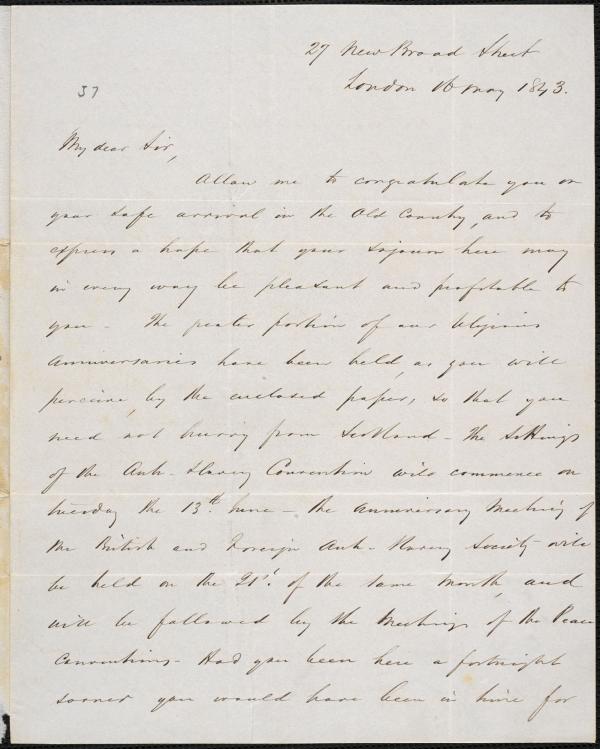 27 New Broad Street
London 16 May 1843.
37
My dear Sir,
Allow me to congratulate you on
your safe arrival in the Old Country, and to
express a hope that your sojourn here may
in every way be pleasant and profitable to
you - The greater portion of our religious
anniversaries have been held, as you will
perceive, by the enclosed paper, so that you
need not hurry from Scotland - The Sittings
of the Anti-Slavery Convention will commence on
Tuesday the 13th. June - the anniversary Meeting of
the British and Foreign Anti-Slavery Society will
be held on the 21st. of the same month, and
will be followed by the Meetings of the Peace
Conventions - Had you been here a fortnight
sooner you would have been in time for